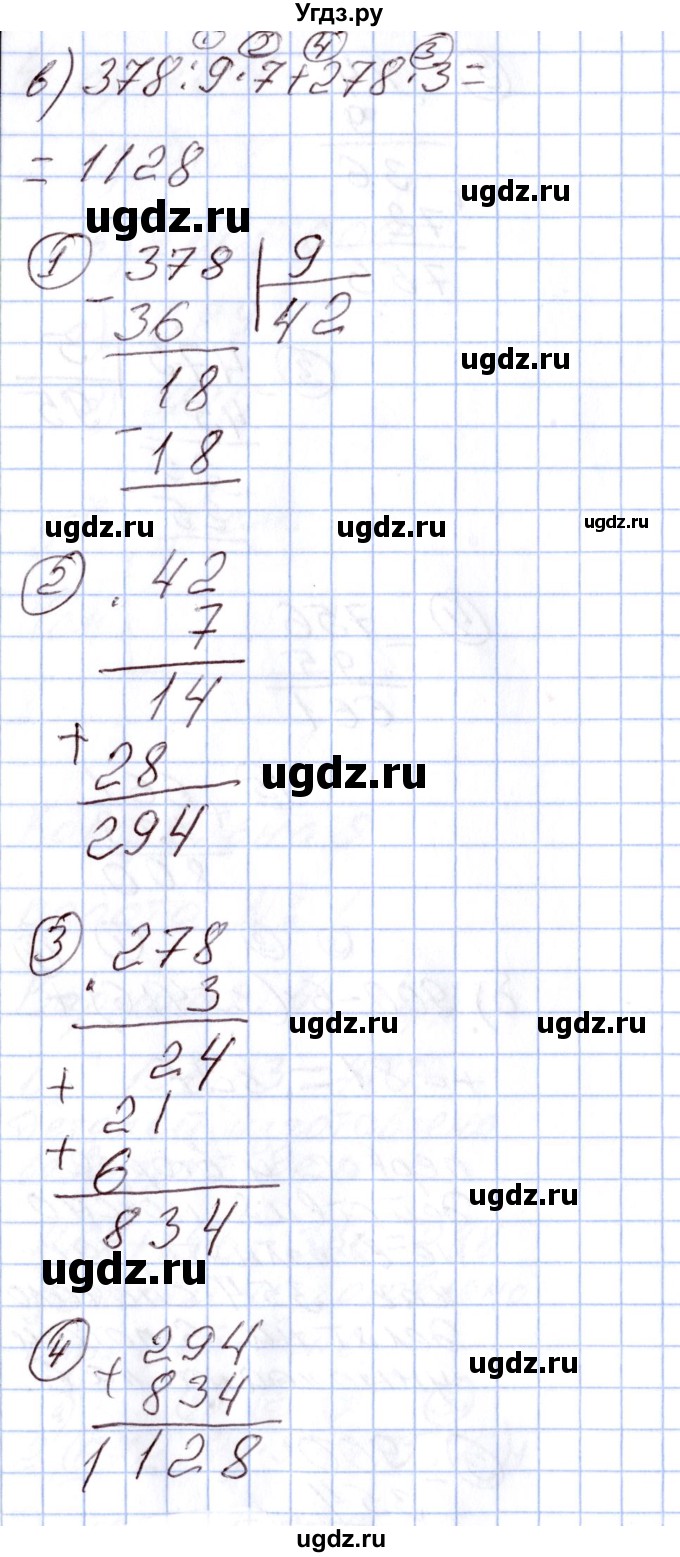 Угдз.ру
① ② ④ ③
в) 378:9·7+278·3=
= 1128
ugdz.ru
ugdz.ru
① 378 | 9
- 36 42
ugdz.ru
18
- 18
ugdz.ru ugdz.ru ugdz.ru
② · 42
7
14
+ 28
ugdz.ru
294
③ 278
· 3
ugdz.ru ugdz.ru
24
+ 21
+ 6
ugdz.ru
834
ugdz.ru
④ 294
+ 834
ugdz.ru
1128
ugdz.ru